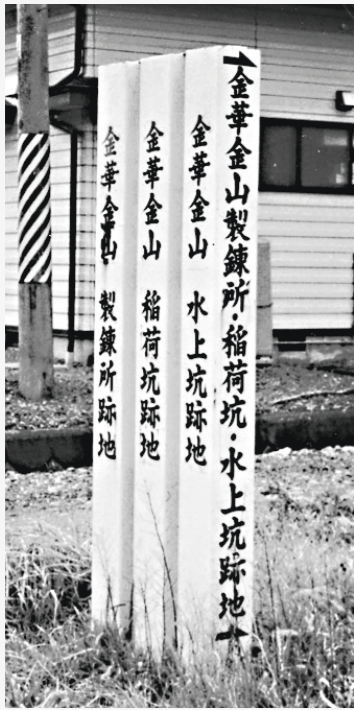 金華金山製錬所・稲荷坑・水上坑跡地
金華金山 水上坑跡地
金華金山 稲荷坑跡地
金華金山 製錬所跡地